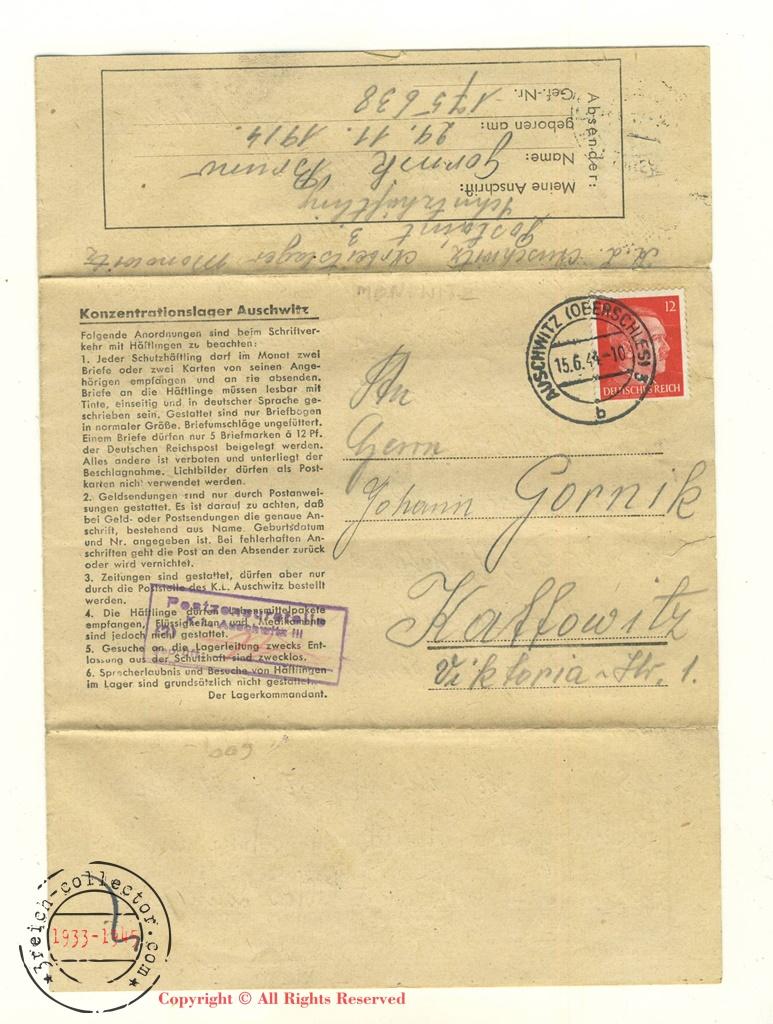 Absender:
Meine Anschrift:
Name: Gornik Bruno
geboren am: 29. 11. 1914.
Gef.-Nr. 175638
Schutzhäftling
K.L. Auschwitz, Arbeitslager Monowitz
Konzentrationslager Auschwitz
Folgende Anordnungen sind beim Schriftver-
kehr mit Häftlingen zu beachten:
1. Jeder Schutzhäftling darf im Monat zwei
Briefe oder zwei Karten von seinen Ange-
hörigen empfangen und an sie absenden.
Briefe an die Häftlinge müssen lesbar mit
Tinte, einseitig und in deutscher Sprache ge-
schrieben sein. Gestattet sind nur Briefbogen
in normaler Größe. Briefumschläge ungefüttert.
Einem Briefe dürfen nur 5 Briefmarken à 12 Pf.
der Deutschen Reichspost beigelegt werden.
Alles andere ist verboten und unterliegt der
Beschlagnahme. Lichtbilder dürfen als Post-
karten nicht verwendet werden.
2. Geldsendungen sind nur durch Postanwei-
sungen gestattet. Es ist darauf zu achten, daß
bei Geld- oder Postsendungen die genaue An-
schrift, bestehend aus Name, Geburtsdatum
und Nr. angegeben ist. Bei fehlerhaften An-
schriften geht die Post an den Absender zurück
oder wird vernichtet.
3. Zeitungen sind gestattet, dürfen aber nur
durch die Poststelle des K.L. Auschwitz bestellt
werden.
4. Die Häftlinge dürfen Lebensmittelpakete
empfangen, Flüssigkeiten und Medikamente
sind jedoch nicht gestattet.
5. Gesuche an die Lagerleitung zwecks Ent-
lassung aus der Schutzhaft sind zwecklos.
6. Sprecherlaubnis und Besuche von Häftlingen
im Lager sind grundsätzlich nicht gestattet.
Der Lagerkommandant.
Postzensurstelle
K.L. Auschwitz III
AUSCHWITZ (OBERSCHLES) 3
15.6.44-10
b
12
DEUTSCHES REICH
An
Herrn
Johann Gornik
Kattowitz
Viktoria-Str. 1.
3reich-collector.com
1933-1945
Copyright © All Rights Reserved